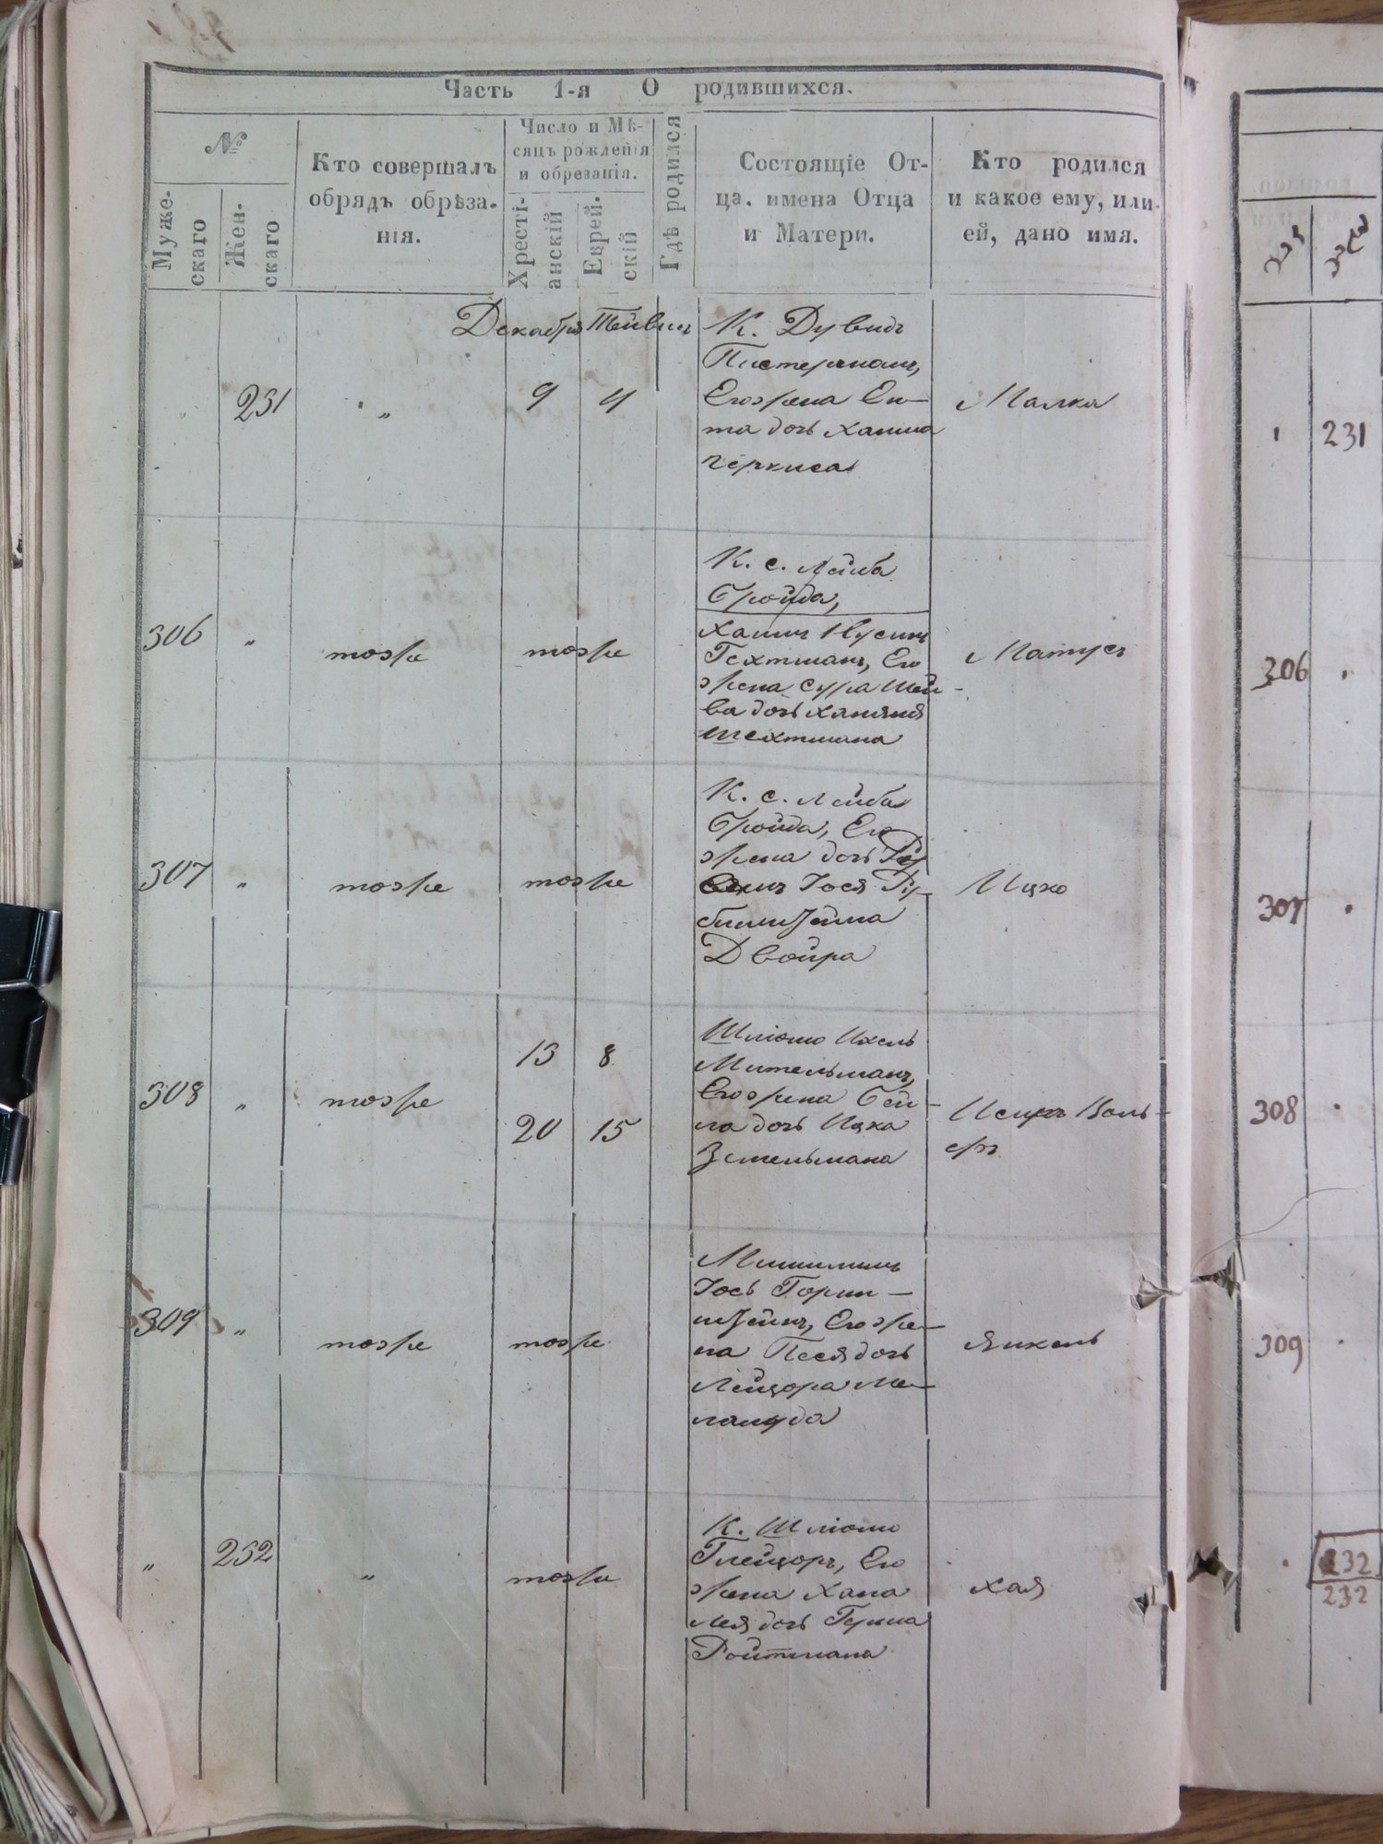 Часть 1-я О родившихся.
№
Муже-
скаго
Жен-
скаго
Кто совершалъ
обрядъ обрѣза-
нія.
Число и Мѣ-
сяцъ рожденія
и обрезанія.
Хресті-
анскій
Еврей-
скій
Гдѣ родился
Состоящіе От-
ца, имена Отца
и Матери.
Кто родился
и какое ему, или
ей, дано имя.
Декабря Тейвисъ
231 „ 9 4
К. Дувидъ
Пистерманъ,
Его жена Ен-
та дочь Хаима
Черкиса
Малка
306 „ тоже тоже
К. с. Лейба
Бройда,
Хаимъ Нусинъ
Гехтманъ, Его
жена Сура Шей-
ва дочь Хаима
Шехтмана
Матусъ
307 „ тоже тоже
К. с. Лейба
Бройда, Его
жена дочь
Іося Ру-
бинштейна
Двойра
Ицко
308 „ тоже
13 8
20 15
Шліомо Ихель
Мительманъ,
Его жена Бей-
ла дочь Ицка
Зетельмана
Исуръ Воль-
фъ
309 „ тоже тоже
Іось Горин-
штейнъ, Его же-
на Песя дочь
Лейзора Ме-
ламуда
Янкель
„ 232 „ тоже
К. Шліомо
Глейзеръ, Его
жена Хана
Лея дочь Герша
Ройтмана
Хая
231
306
307
308
309
232
232